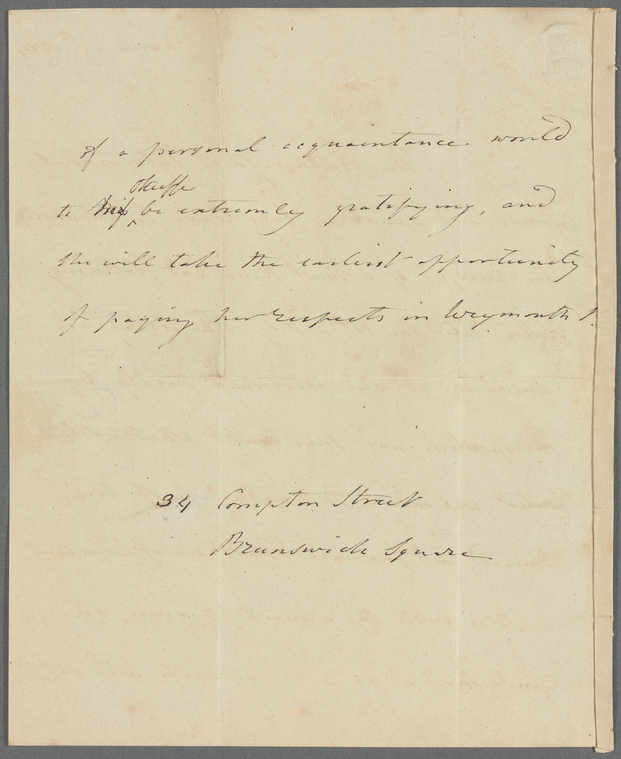 of a personal acquaintance would
OKeeffe
to Miss ^ be extremely gratifying, and
she will take the earliest opportunity
of paying her respects in Weymouth St.
34 Compton Street
Brunswick Square